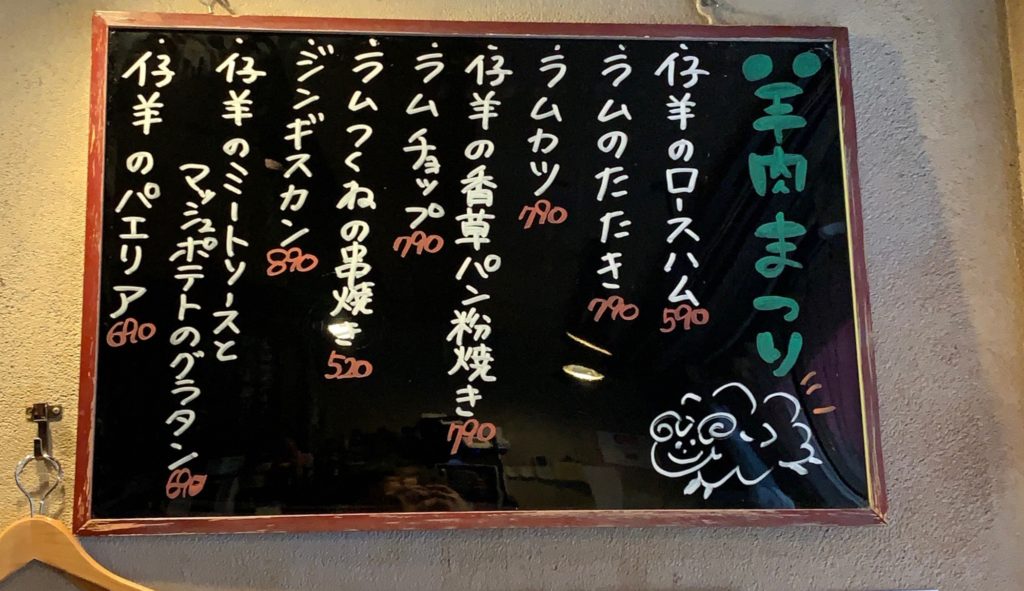 羊肉まつり
仔羊のロースハム 590
ラムのたたき 790
ラムカツ 790
仔羊の香草パン粉焼き 790
ラムチョップ 790
ラムつくねの串焼き 520
ジンギスカン 890
仔羊のミートソースと
マッシュポテトのグラタン 690
仔羊のパエリア 690